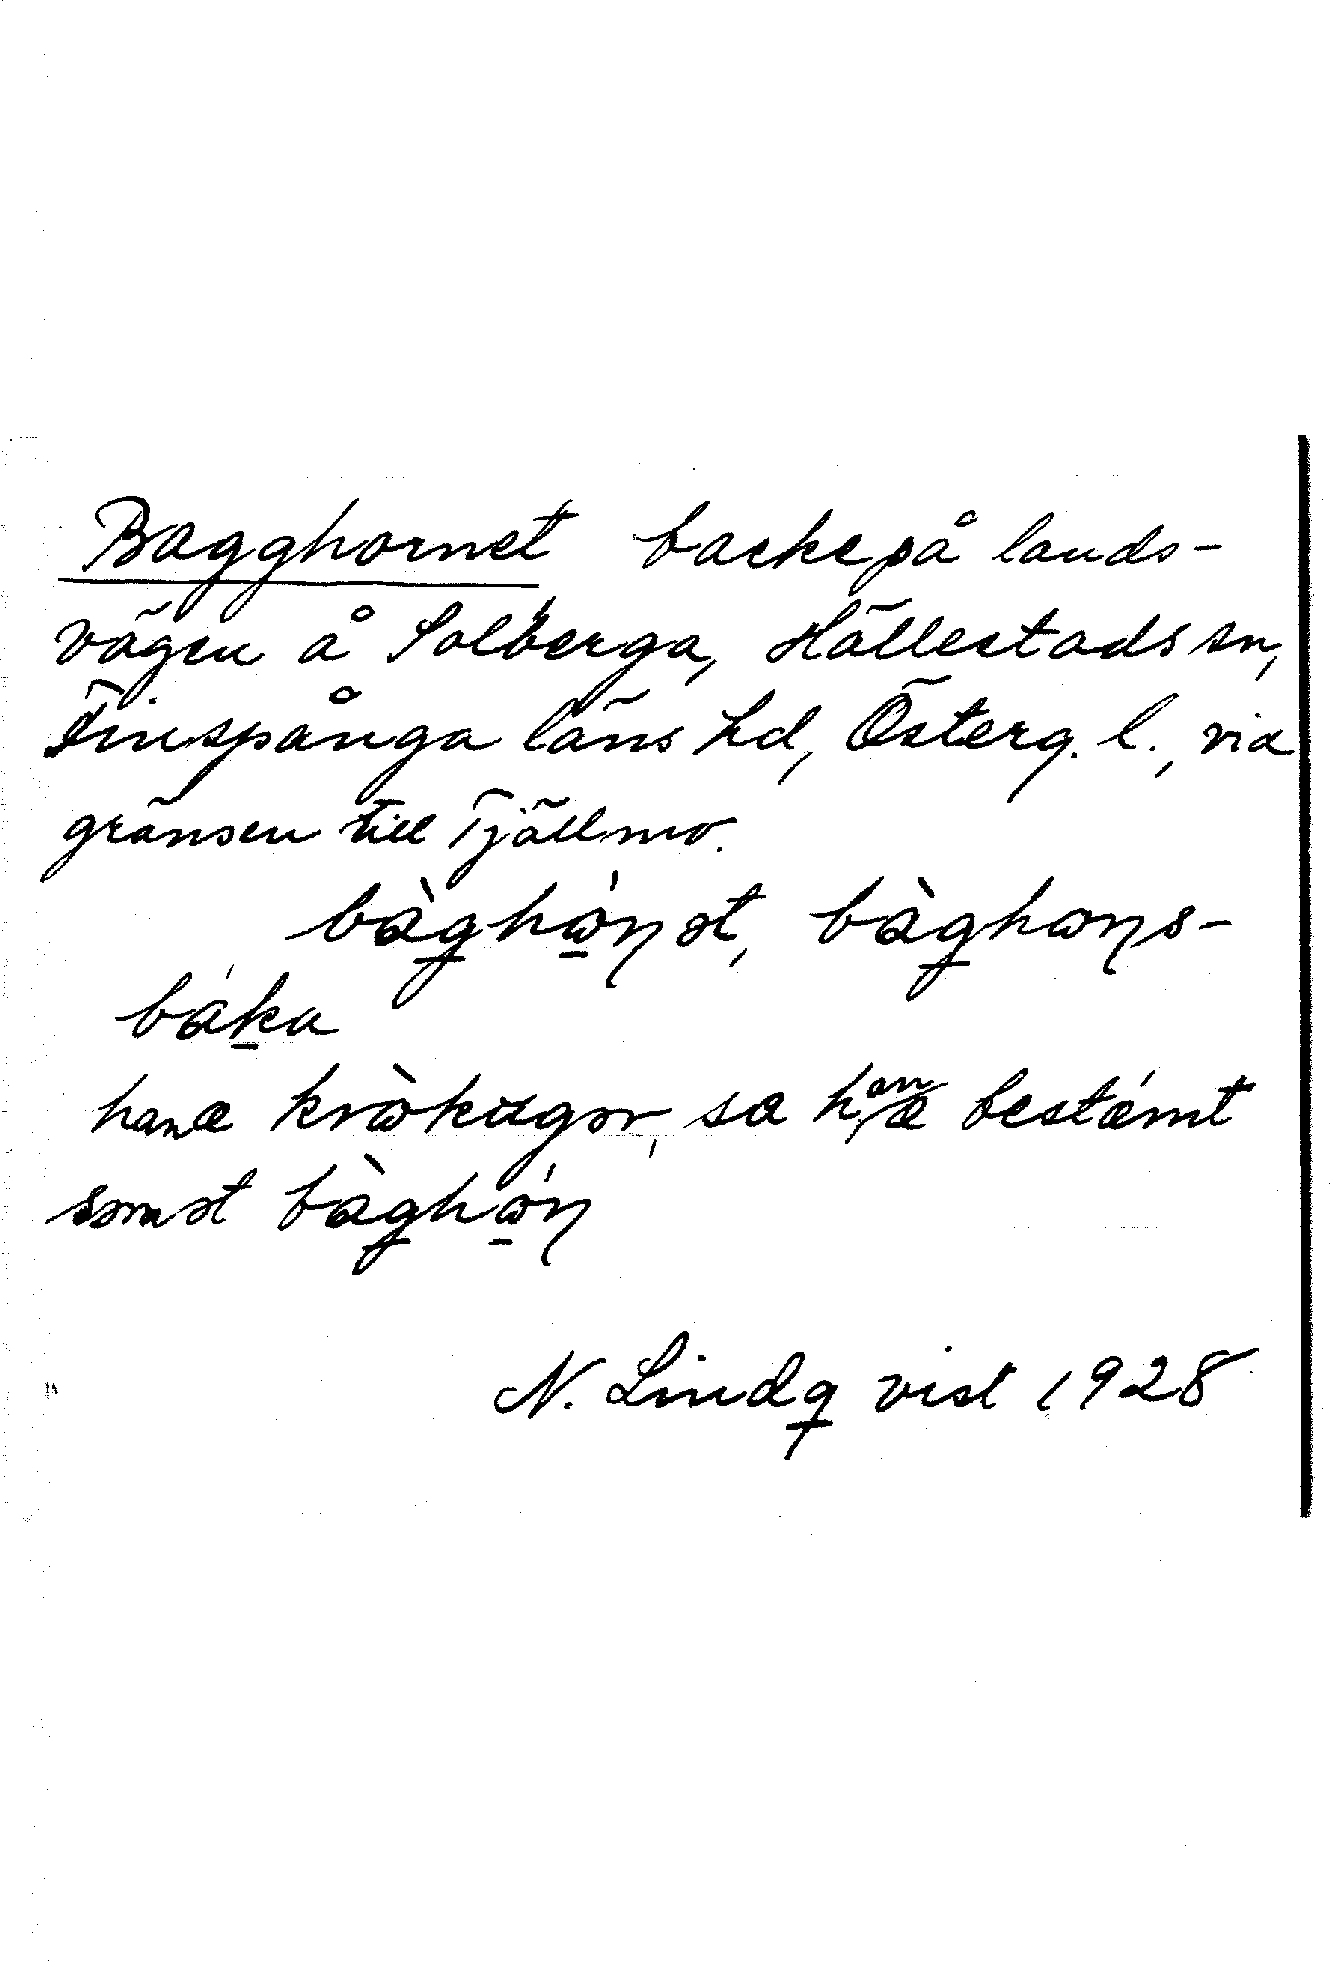 Bagghornet backe på lands-
vägen å Solberga, Hällestads sn,
Finspånga läns hd, Österg. l., vid
gränsen till Tjällmo.
bàghὼṇət, bàghωṇs-
báka
han æ krὼkugər, sa han æ bestǽmt
somət bàghὼṇ
N. Lindqvist 1928